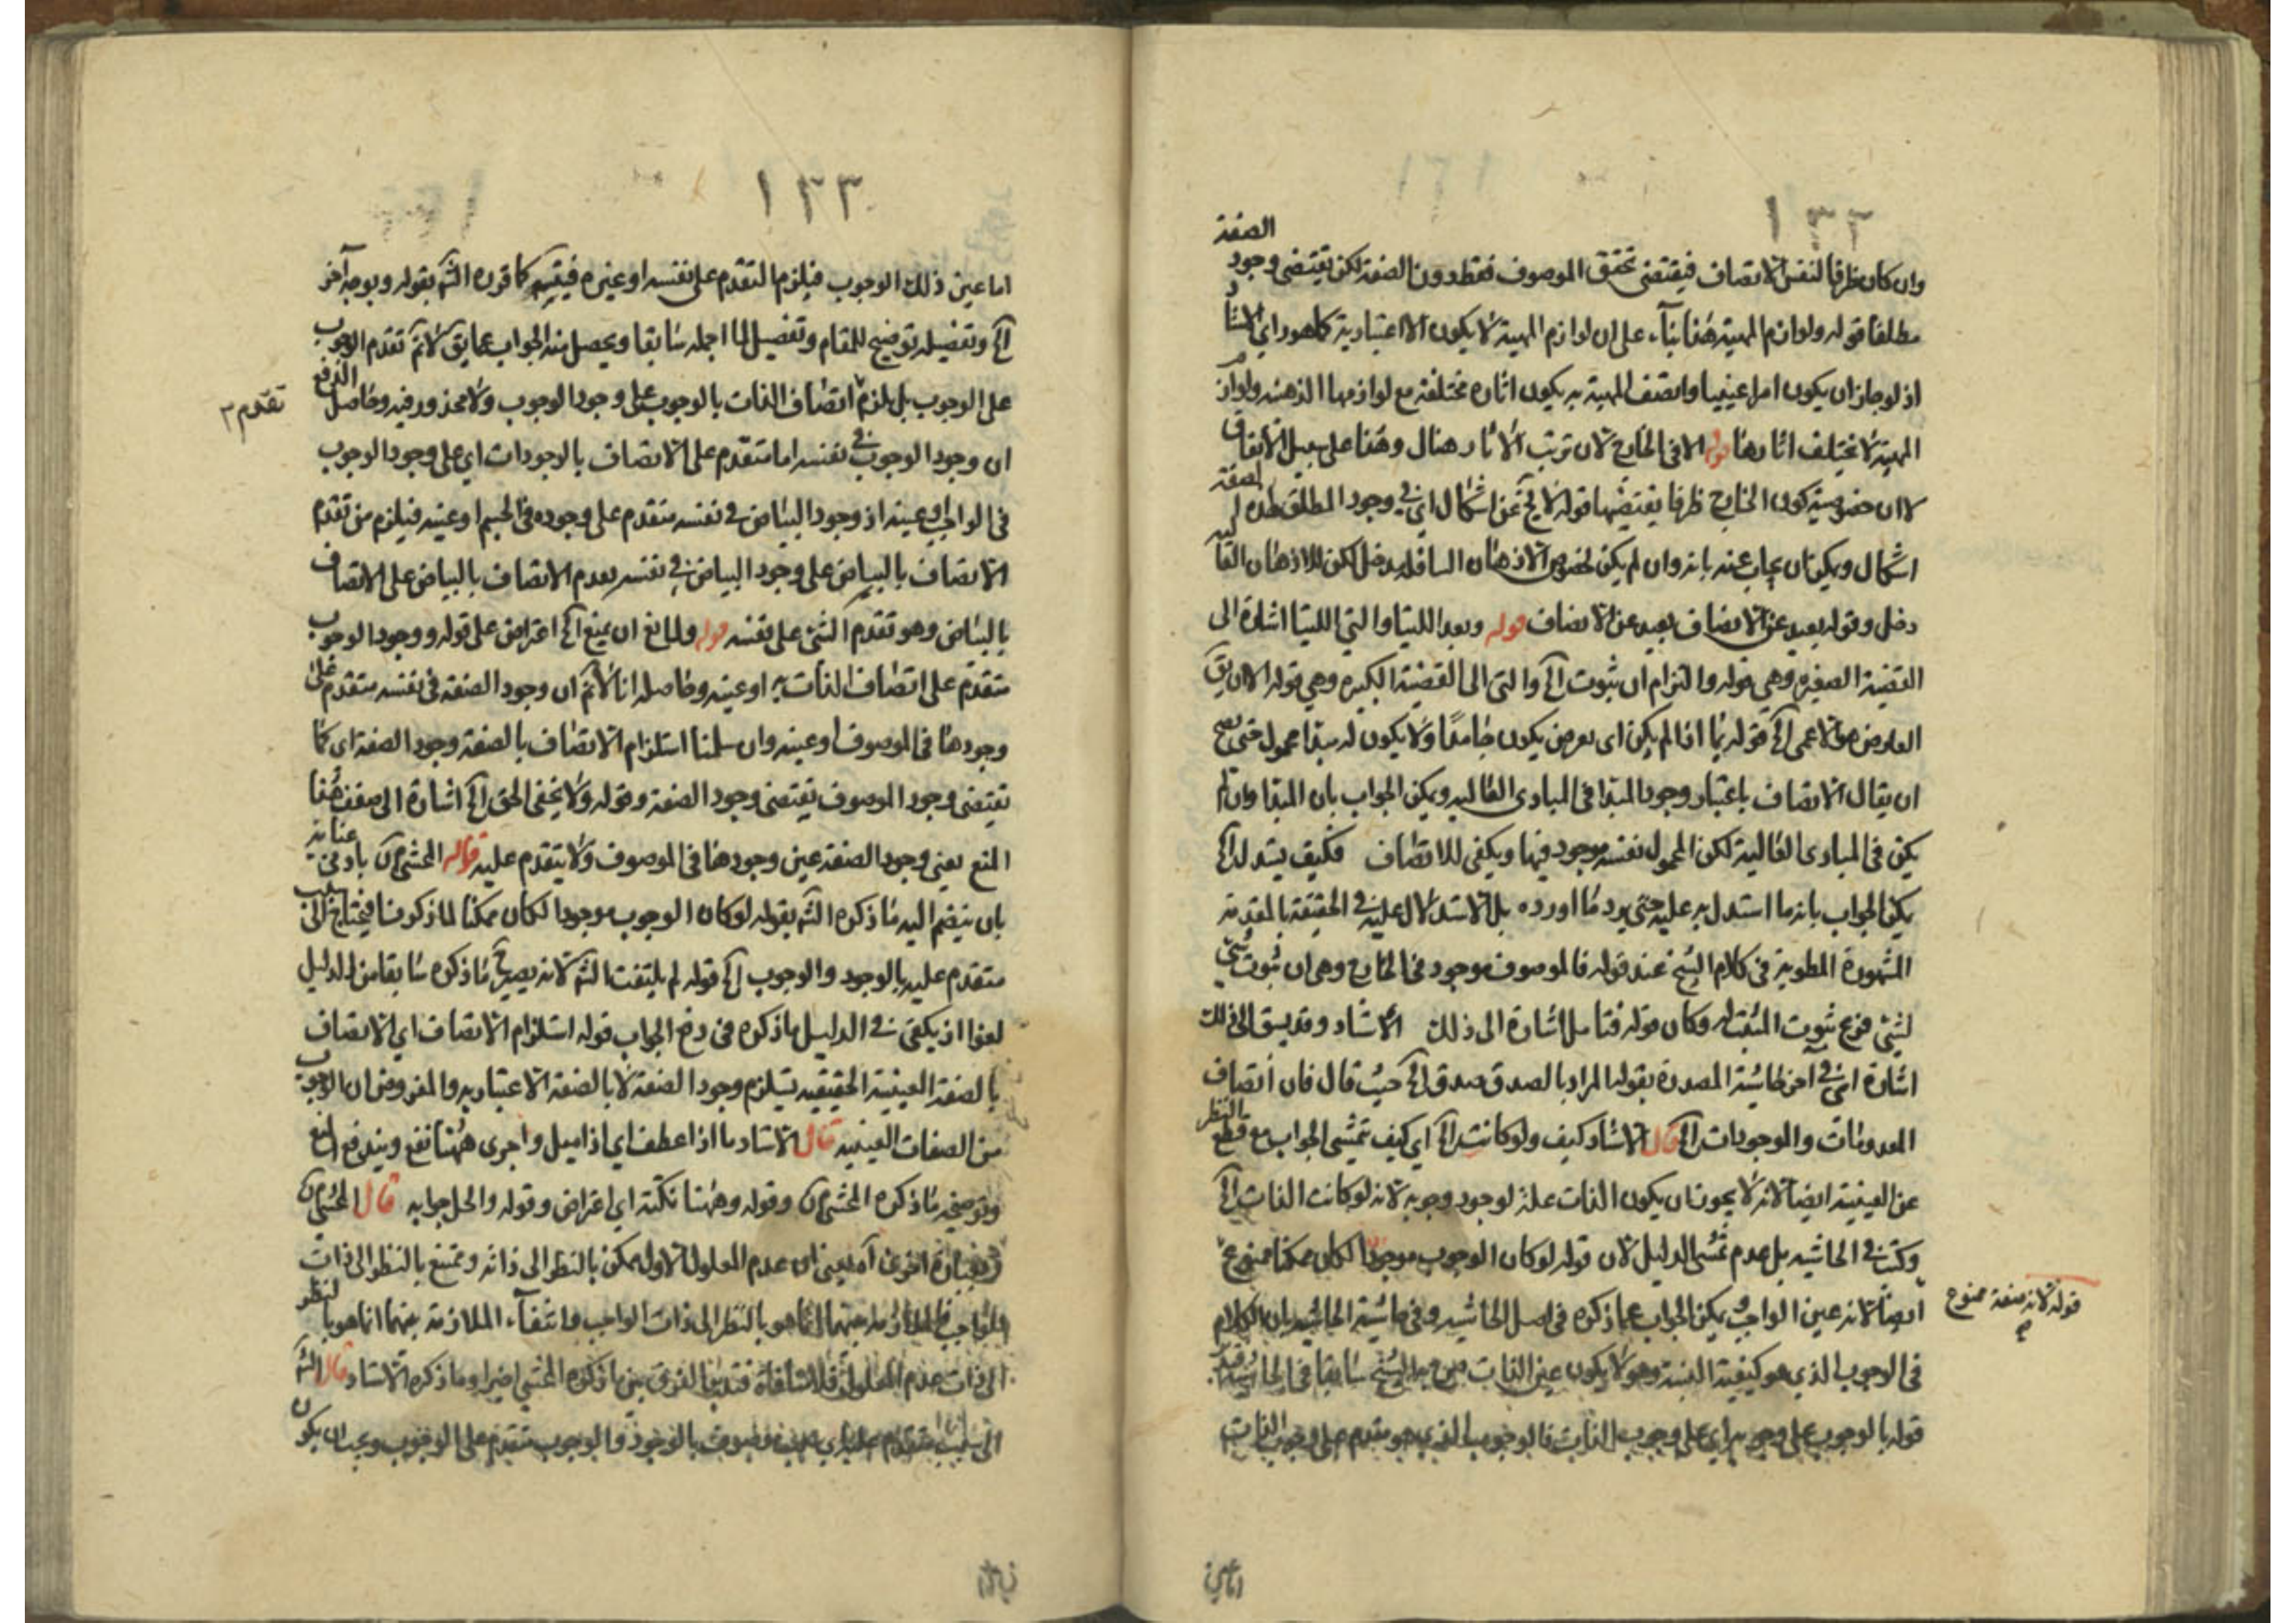 ١٣٢
وان كان ظرفا لنفس الاتصاف فيقتضى تحقق الموصوف فقط دون الصفة لكن يقتضى وجود الصفة
مطلقا قوله ولوازم المهية هذا بناء على ان لوازم المهية لا يكون الا اعتبارية كما هو راى الاستاد
اذ لو جاز ان يكون امرا عينيا واتصف المهية به يكون اثاره مختلفة مع لوازمها الذهنية ولوازم
المهية لا يختلف اثارها قوله الا فى الخارج لان ترتب الاثار هناك وهذا على سبيل الاتفاق
لا ان خصوصية كون الخارج ظرفا يقتضيها قوله لا يخ عن اشكال اى فى وجود المطلق لهذه الصفة
اشكال ويمكن ان يجاب عنه بانه وان لم يكن لخصوص الاذهان السافلة مدخل لكن للاذهان العالية
دخل وقوله بعيد عن الاتصاف بعيد عن الانصاف قوله وبعد اللتيا والتي اللتيا اشارة الى
القضية الصغيرة وهي قوله والتزام ان ثبوت الخ والتى الى القضية الكبيرة وهي قوله الا ان يق
العارض هو الاعمى الخ قوله بما اذا لم يكن اى بعرض يكون جامدا ولا يكون له مبدا محمول حتى يصح
ان يقال الاتصاف باعتبار وجود المبدا فى المبادى العالية ويمكن الجواب بان المبدا وان لم
يكن فى المبادى العالية لكن المحمول نفسه موجود فيها ويكفى للاتصاف فكيف يستدل الخ
يمكن الجواب بانه ما استدل به عليه حتى يرد ما اورده بل الاستدلال عليه فى الحقيقة بالمقدمة
المشهورة المطوية فى كلام الشيخ عند قوله فالموصوف موجود فى الخارج وهى ان ثبوت شئ
لشئ فرع ثبوت المثبت له وكان قوله فتامل اشارة الى ذلك الاستاد وقد يسبق الى ذلك
اشارة اى فى آخر حاشية المصدرة بقوله المراد بالصدق صدق الخ حيث قال فان اتصاف
المعدومات والموجودات الخ قال الاستاد كيف ولو كانت الخ اى كيف يتمشى الجواب مع قطع النظر
عن العينية ايضا لانه لا يجوز ان يكون الذات علة لوجود وجوبه لانه لو كانت الذات الخ
وكتب فى الحاشيه بل عدم تمشى الدليل لان قوله لو كان الوجوب موجودا لكان ممكنا ممنوع
ايضا لانه عين الواجب ويمكن الجواب عما ذكره فى اصل الحاشيه وفى حاشية الحاشيه بان الكلام
فى الوجوب الذي هو كيفية النسبة وهو لا يكون عين الذات
قوله بالوجوب على وجوبه اى على وجوب الذات فالوجوب الذى هو مقدم على وجوب الذات
قوله لانه صفة ممنوع
اما عين
١٣٣
اما عين ذلك الوجوب فيلزم التقدم على نفسه او غيره فيقسم كما قرره الشه بقوله وبوجه آخر
الخ وتفصيله توضيح للمقام وتفصيل لما اجمله سابقا ويحصل منه الجواب عما يق لا نم تقدم الوجوب
على الوجوب بل يلزم اتصاف الذات بالوجوب على وجود الوجوب ولا محذور فيه وحاصل الدفع
تقدم ٣
ان وجود الوجوب فى نفسه اما متقدم على الاتصاف بالوجودات اى على وجود الوجوب
فى الواجب او عينه اذ وجود البياض فى نفسه متقدم على وجوده فى الجسم او عينه فيلزم من تقدم
الاتصاف بالبياض على وجود البياض فى نفسه تقدم الاتصاف بالبياض على الاتصاف
بالبياض وهو تقدم الشئ على نفسه قوله ولمانع ان يمنع الخ اعتراض على قوله ووجود الوجوب
متقدم على اتصاف الذات به او عينه وحاصله انا لا نم ان وجود الصفة فى نفسه متقدم على
وجودها فى الموصوف او عينه وان سلمنا استلزام الاتصاف بالصفة وجود الصفة اى كما
تقتضى وجود الموصوف تقتضى وجود الصفة وقوله ولا يخفى الحق الخ اشارة الى ضعف هذا
المنع يعنى وجود الصفة عين وجودها فى الموصوف ولا يتقدم عليه قوله المحشى بادنى عناية
بان ينضم اليه ما ذكره الشه بقوله لو كان الوجوب موجودا لكان ممكنا لما ذكرنا فيحتاج الى سبب
متقدم عليه بالوجود والوجوب الخ قوله لم يلتفت الشه لانه يصير ح ما ذكره سابقا من الدليل
لغوا اذ يكفى فى الدليل ما ذكره فى دفع الجواب قوله استلزام الاتصاف اى الاتصاف
بالصفة العينية الحقيقيه يستلزم وجود الصفة لا بالصفة الاعتباريه والمفروض ان الوجوب
من الصفات العينيه قال الاستاد ما اذا عطف اى اذا ميل واجرى ههنا نفع ويندفع المنع
وتوضيحه ما ذكره المحشى وقوله وههنا نكتة اى اعتراض وقوله والحل جوابه قال المحشى
وبعبارة اخرى آه يعنى ان عدم المعلول الاول ممكن بالنظر الى ذاته وممتنع بالنظر الى ذات
الواجب فالملازمة بينهما انما هو بالنظر الى ذات الواجب وانتفاء الملازمة بينهما انما هو بالنظر
الى ذات عدم المعلول فلا منافاة فتدبر الفرق بين ما ذكره المحشى اخيرا وما ذكره الاستاد قال الشه
الى سبب متقدم عليه بالوجود والوجوب متقدم على الوجوب ويجب ان يكون